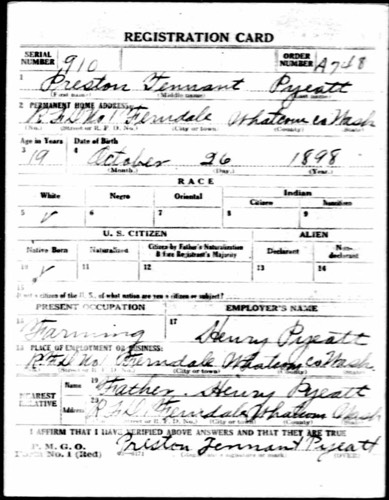 REGISTRATION CARD
SERIAL NUMBER 910 ORDER NUMBER A748
1 Preston Tennant Pyeatt
(First name) (Middle name) (Last name)
2 PERMANENT HOME ADDRESS:
R.F.D. No 1 Ferndale Whatcom co Wash
(No.) (Street or R. F. D. No.) (City or town) (County) (State)
Age in Years Date of Birth
3 19 4 October 26 1898
(Month.) (Day.) (Year.)
RACE
White Negro Oriental Indian
Citizen Noncitizen
5 ✓ 6 7 8 9
U. S. CITIZEN ALIEN
Native Born Naturalized Citizen by Father's Naturalization Before Registrant's Majority Declarant Non-declarant
10 ✓ 11 12 13 14
15
If not a citizen of the U. S., of what nation are you a citizen or subject?
PRESENT OCCUPATION EMPLOYER'S NAME
16 Farming 17 Henry Pyeatt
18 PLACE OF EMPLOYMENT OR BUSINESS:
R.F.D. No 1 Ferndale Whatcom co Wash
(City or town) (County)
NEAREST RELATIVE Name 19 Father. Henry Pyeatt
Address 20 R.F.D. 1 Ferndale Whatcom Wash
(City or town) (County)
I AFFIRM THAT I HAVE VERIFIED ABOVE ANSWERS AND THAT THEY ARE TRUE
P. M. G. O.
Form No. 1 (Red) Preston Tennant Pyeatt